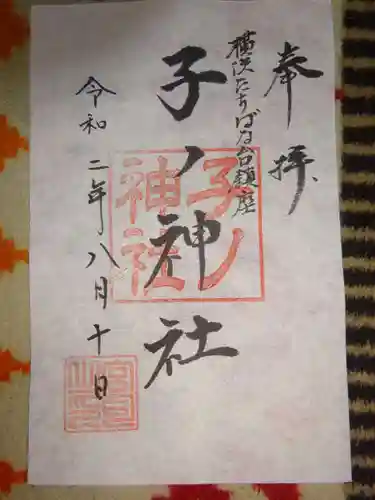 奉拝
横浜たちばな台鎮座
子ノ神社
子ノ神社
令和二年八月十日